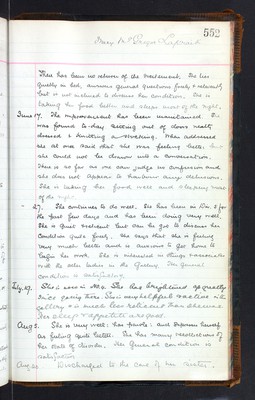 552
There has been no return of the excitement. She lies
quietly in bed, answers general questions freely & relevantly
but is not inclined to discuss her condition. She is
taking her food better and sleeps most of the night.
June 17. The improvement has been maintained. She
was found to-day sitting out of doors neatly
dressed & knitting a stocking. When addressed
she at once said that she was feeling better. But
she could not be drawn into a conversation.
There is so far as one can judge no depression and
she does not appear to harbour any delusions.
She is taking her food well and sleeping most
of the night
27. She continues to do well. She has been in for
the past few days and has been doing very well.
She is quiet but can be got to discuss her
condition quite freely. She says that she is feeling
very much better and is anxious to get home to
begin her work. She is interested in things
with the other ladies in the Gallery. Her general
condition is satisfactory.
July 17. She is now in She has brightened up greatly
since going there. She is very helpful & active in the
gallery & is much less reticent than she was
She sleep & appetite are good.
Aug 3. She is very well: has parole: and expresses herself
as feeling quite better. She has many recollections of
her state of disorder. Her general condition is
satisfactory.
Aug 20. Discharged to the care of her sister.